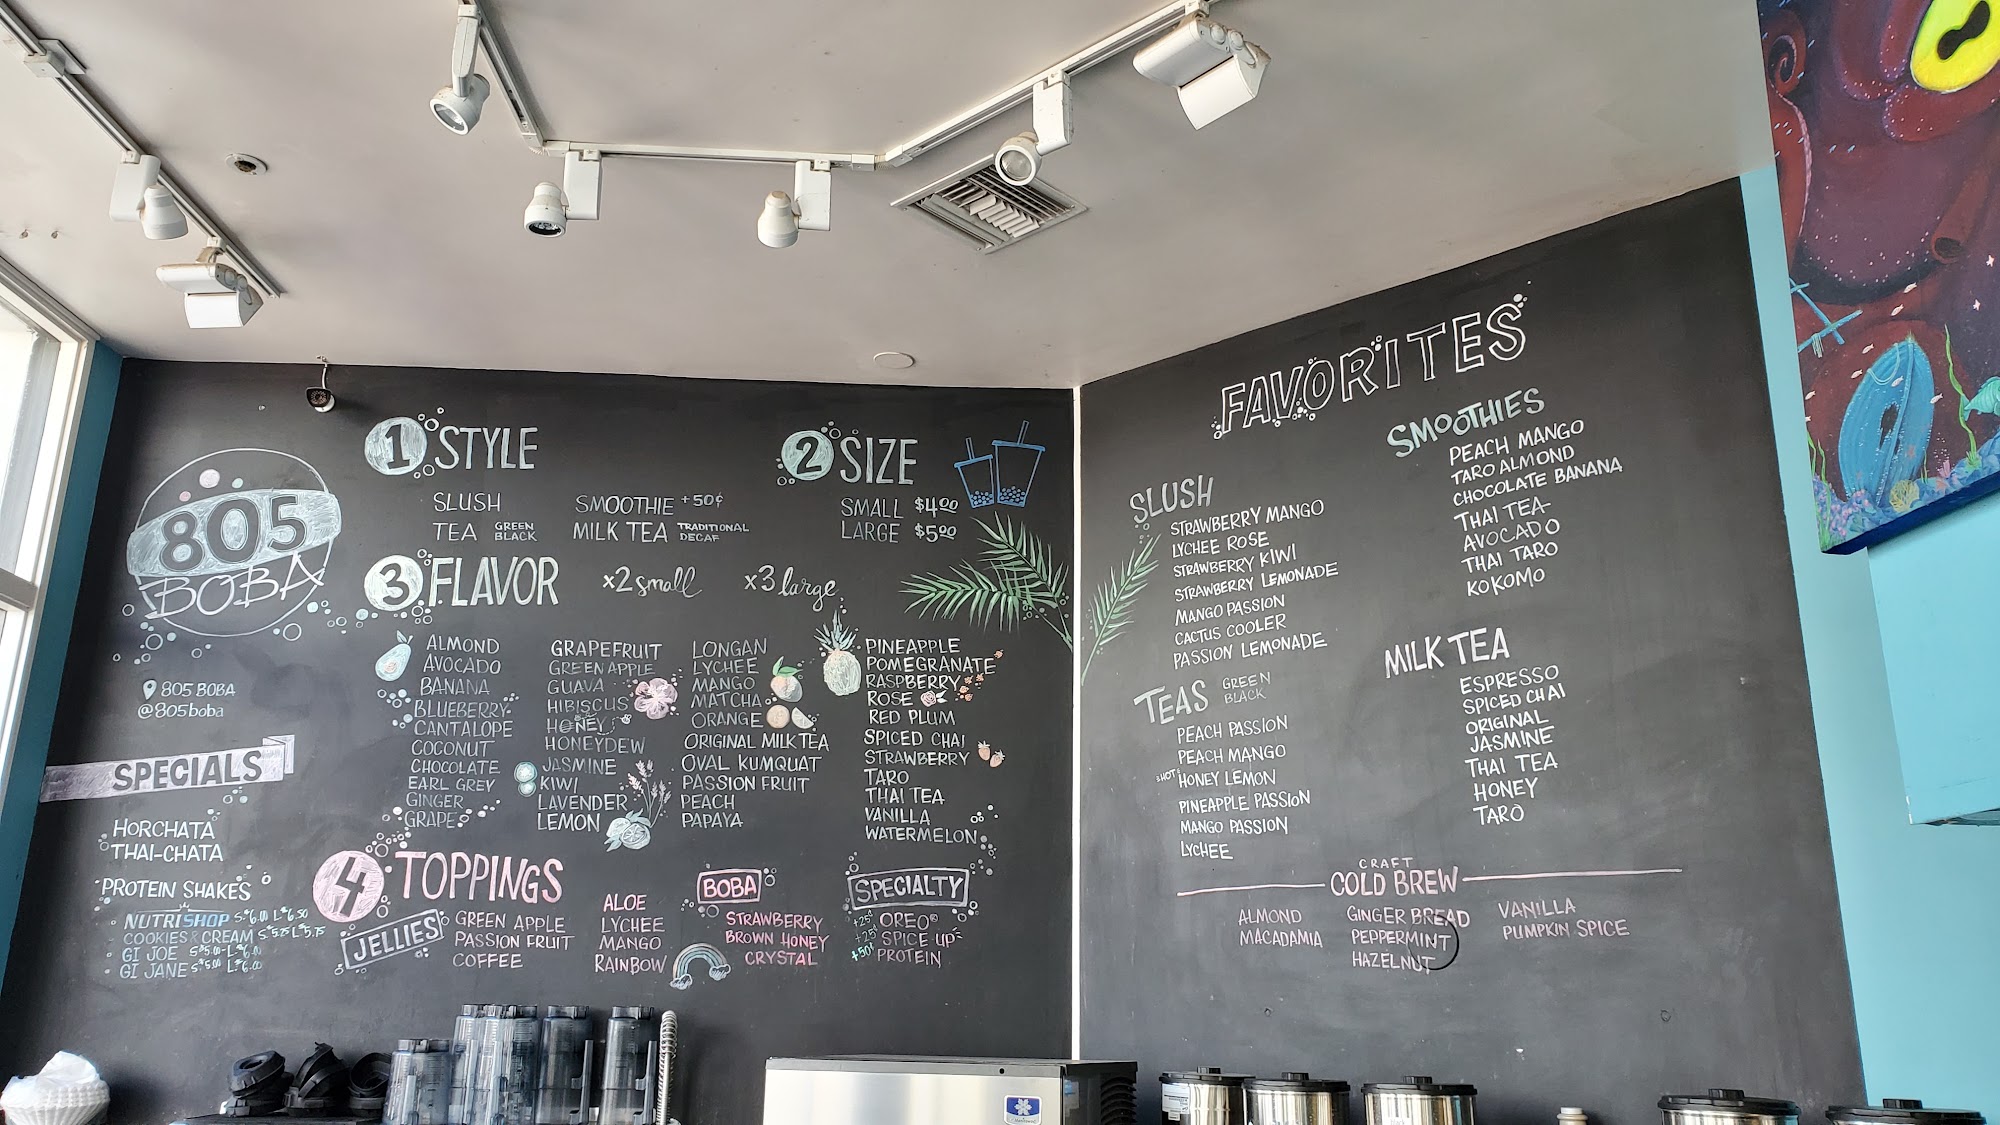 805
BOBA
805 BOBA
@805boba
SPECIALS
HORCHATA
THAI-CHATA
PROTEIN SHAKES
NUTRISHOP S.$6.00 L.$6.50
COOKIES & CREAM S.$5.25 L.$5.75
GI JOE S.$5.00 - L.$6.00
GI JANE S.$5.00 L.$6.00
1 STYLE
SLUSH
TEA GREEN BLACK
SMOOTHIE +50¢
MILK TEA TRADITIONAL DECAF
2 SIZE
SMALL $4.00
LARGE $5.00
3 FLAVOR x2 small x3 large
ALMOND
AVOCADO
BANANA
BLUEBERRY
CANTALOPE
COCONUT
CHOCOLATE
EARL GREY
GINGER
GRAPE
GRAPEFRUIT
GREEN APPLE
GUAVA
HIBISCUS
HONEY
HONEYDEW
JASMINE
KIWI
LAVENDER
LEMON
LONGAN
LYCHEE
MANGO
MATCHA
ORANGE
ORIGINAL MILK TEA
OVAL KUMQUAT
PASSION FRUIT
PEACH
PAPAYA
PINEAPPLE
POMEGRANATE
RASPBERRY
ROSE
RED PLUM
SPICED CHAI
STRAWBERRY
TARO
THAI TEA
VANILLA
WATERMELON
4 TOPPINGS
JELLIES
GREEN APPLE
PASSION FRUIT
COFFEE
ALOE
LYCHEE
MANGO
RAINBOW
BOBA
STRAWBERRY
BROWN HONEY
CRYSTAL
SPECIALTY
+25¢ OREO®
+25¢ SPICE UP
+50¢ PROTEIN
FAVORITES
SLUSH
STRAWBERRY MANGO
LYCHEE ROSE
STRAWBERRY KIWI
STRAWBERRY LEMONADE
MANGO PASSION
CACTUS COOLER
PASSION LEMONADE
TEAS GREEN BLACK
PEACH PASSION
PEACH MANGO
HOT HONEY LEMON
PINEAPPLE PASSION
MANGO PASSION
LYCHEE
SMOOTHIES
PEACH MANGO
TARO ALMOND
CHOCOLATE BANANA
THAI TEA
AVOCADO
THAI TARO
KOKOMO
MILK TEA
ESPRESSO
SPICED CHAI
ORIGINAL
JASMINE
THAI TEA
HONEY
TARO
CRAFT
COLD BREW
ALMOND
MACADAMIA
GINGER BREAD
PEPPERMINT
HAZELNUT
VANILLA
PUMPKIN SPICE